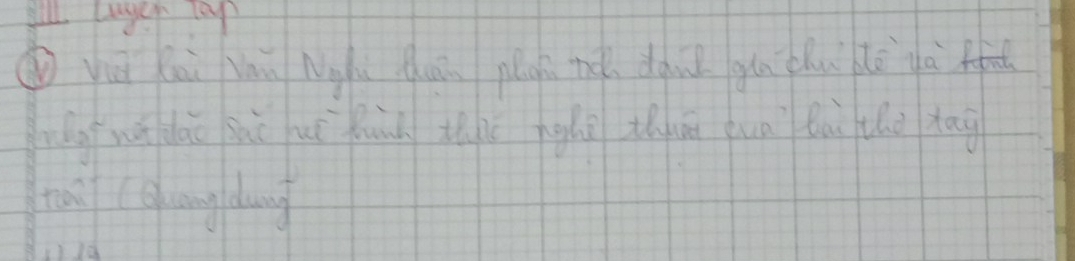 III. Luyện Tập
Viết bài Văn Nghị luận phân tích đánh giá chủ đề và
những nét đặc sắc về hình thức nghệ thuật của bài thơ tây
tiến (Quang dũng